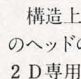 構造上
のヘッド
2D専用